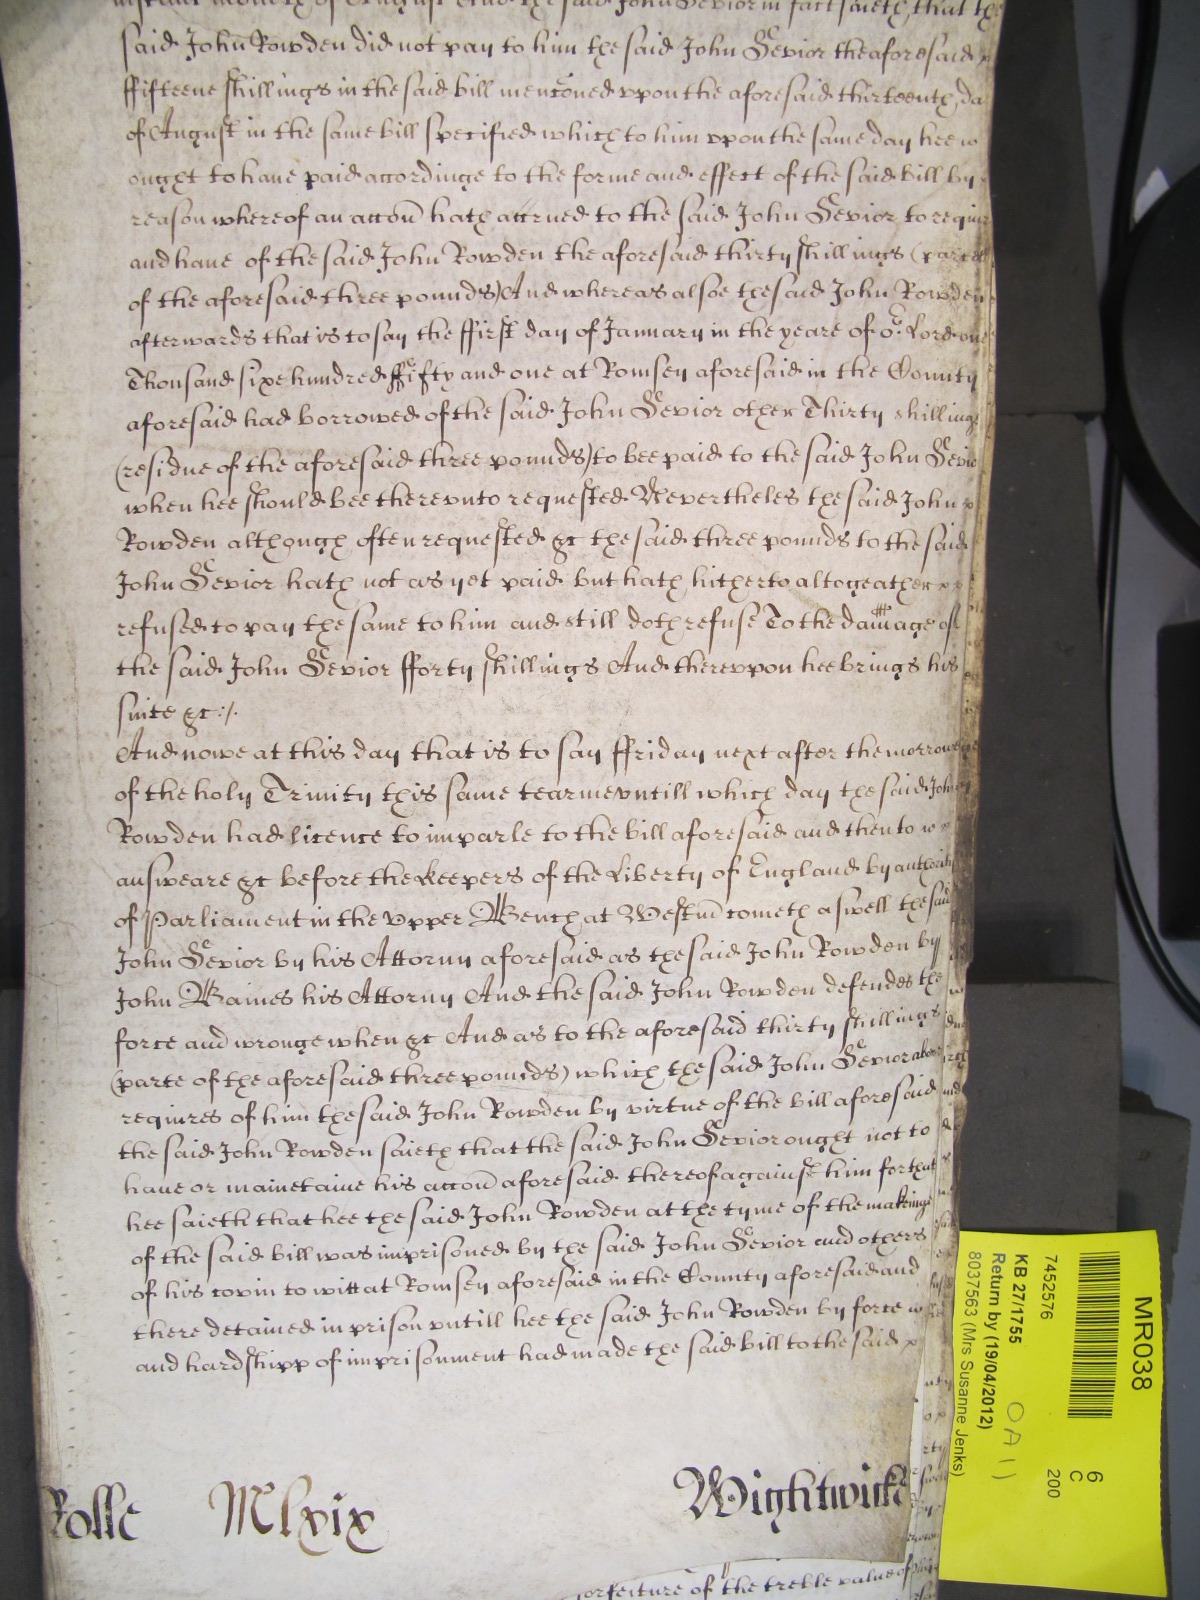 instant moneth of August And the said John Sevior in fact saieth that the
said John Rowden did not pay to him the said John Sevior the aforesaid
ffifteene shillings in the said bill menc̃oned vpon the aforesaid thirteenth da
of August in the same bill specified which to him vpon the same day hee
ought to haue paid accordinge to the forme and effect of the said bill by
reason whereof an acc̃on hath accrued to the said John Sevior to require
and haue of the said John Rowden the aforesaid thirty shillings (parcell
of the aforesaid three pounds) And whereas alsoe the said John Rowden
afterwards that is to say the ffirst day of January in the yeare of or Lord one
Thousand sixe hundred ffifty and one at Romsey aforesaid in the County
aforesaid had borrowed of the said John Sevior other Thirty shillings
(residue of the aforesaid three pounds) to bee paid to the said John Sevio
when hee should bee therevnto requested Nevertheles the said John
Rowden although often requested &c the said three pounds to the said
John Sevior hath not as yet paid but hath hitherto altogeather
refused to pay the same to him and still doth refuse To the dam̃age of
the said John Sevior fforty shillings And therevpon hee brings his
suite &c:/.
And nowe at this day that is to say ffriday next after the morrowe
of the holy Trinity this same tearme vntill which day the said John
Rowden had licence to imparle to the bill aforesaid and then to
answeare &c before the Keepers of the Liberty of England by authority
of Parliament in the vpper Bench at Westm̃ cometh aswell the said
John Sevior by his Attorny aforesaid as the said John Rowden by
John Baines his Attorny And the said John Rowden defendes the
force and wronge when &c And as to the aforesaid thirty shillings
(parte of the aforesaid three pounds) which the said John Sevior above
requires of him the said John Rowden by virtue of the bill aforesaid
the said John Rowden saieth that the said John Sevior ought not to
haue or mainetaine his acc̃on aforesaid thereof against him for that
hee saieth that hee the said John Rowden at the tyme of the makeinge
of the said bill was imprisoned by the said John Sevior and others
of his covin to witt at Romsey aforesaid in the County aforesaid and
there detained in prison vntill hee the said John Rowden by force
and hardshipp of imprisonment had made the said bill to the said
Rolle Mlxix Wightwicke
forfeiture of the treble value of
MR038
7452576
KB 27/1755
Return by (19/04/2012)
8037563 (Mrs Susanne Jenks)
OA 1)
6
C
200